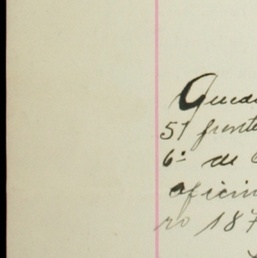 Queda
51 frente
6º de
oficin
ro 187